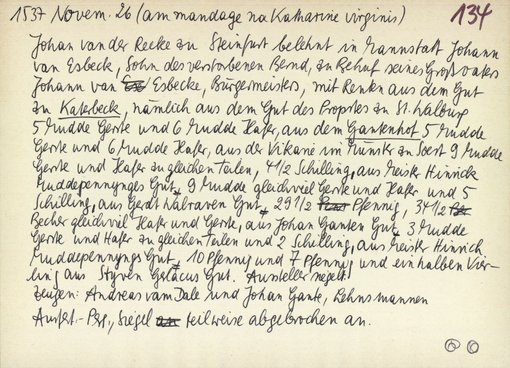 1537 Novem. 26 (am mandage na Katharine virginis) 134
Johan van der Recke zu Steinfurt belehnt in Mannstatt Johann
van Esbeck, Sohn des verstorbenen Bernd, zu Behuf seines Großvaters
Johann van Esbecke, Bürgermeisters, mit Renten aus dem Gut
zu Katerbeck, nämlich aus dem Gut des Propstes zu St. Walburg
5 Mudde Gerste und 6 Mudde Hafer, aus dem Gantenhof 5 Mudde
Gerste und 6 Mudde Hafer, aus der Vikarie im Münster zu Soest 9 Mudde
Gerste und Hafer zu gleichen Teilen, 4 1/2 Schilling, aus Meister Hinrick
Muddepennynges Gut, 9 Mudde gleichviel Gerste und Hafer und 5
Schilling, aus Gerdt Walraven Gut, 29 1/2 Pfennig, 34 1/2
Becher gleichviel Hafer und Gerste, aus Johan Ganten Gut, 3 Mudde
Gerste und Hafer zu gleichen Teilen und 2 Schilling, aus Meister Hinrich
Muddepennyngs Gut, 10 Pfennig und 7 Pfennig und einhalben Vier-
ling aus Styven Gut. Aussteller siegelt.
Zeugen: Andreas vam Dale und Johan Gante, Lehnsmannen
Ausfert.-Perg., Siegel teilweise abgebrochen an.